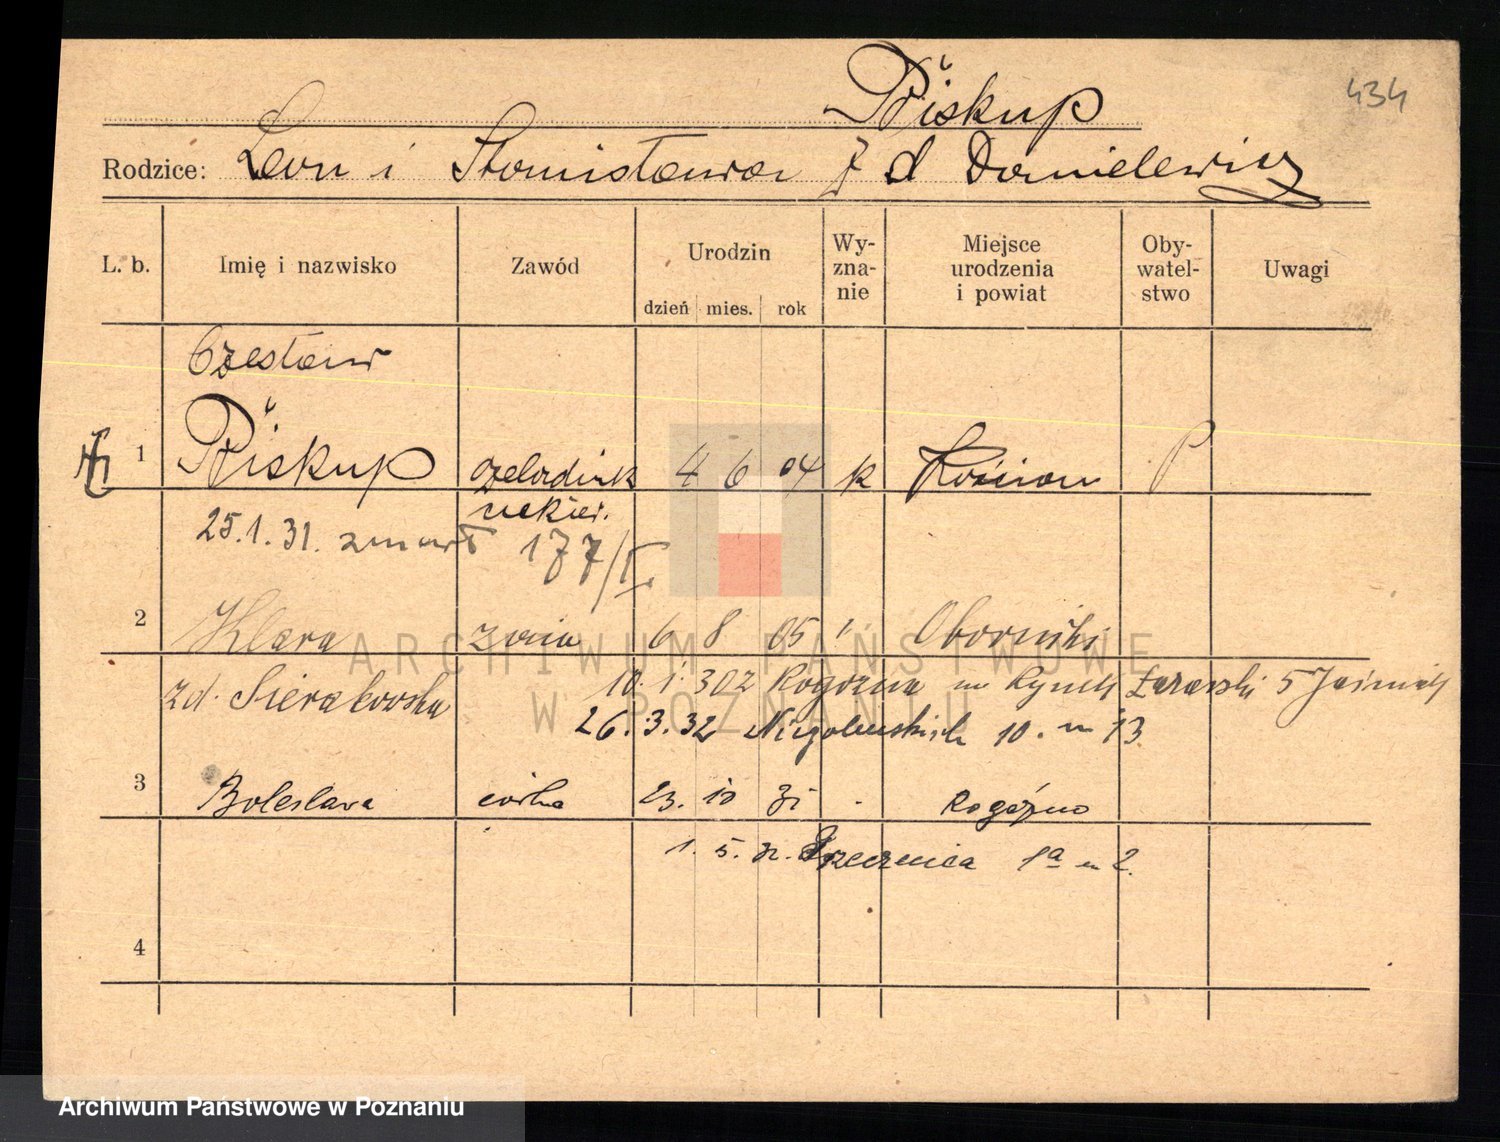 Biskup
434
Rodzice: Leon i Stanisława z d Danielewicz
L. b. Imię i nazwisko Zawód Urodzin dzień mies. rok Wy-zna-nie Miejsce urodzenia i powiat Oby-watel-stwo Uwagi
Czesław
1 Biskup czeladnik 4 6 04 k Kościan P
cukier.
25.1.31. zmarł 177/I
2 Klara żona 6 8 05 " Oborniki
zd. Sierakowska
10.1.30 Rogoźna Rynek 5
26.3.32 10. m 13
3 Bolesława córka 23. 10 31 Rogóźno
1. 5. 32. 1a m 2.
4
ARCHIWUM PAŃSTWOWE
W POZNANIU
Archiwum Państwowe w Poznaniu